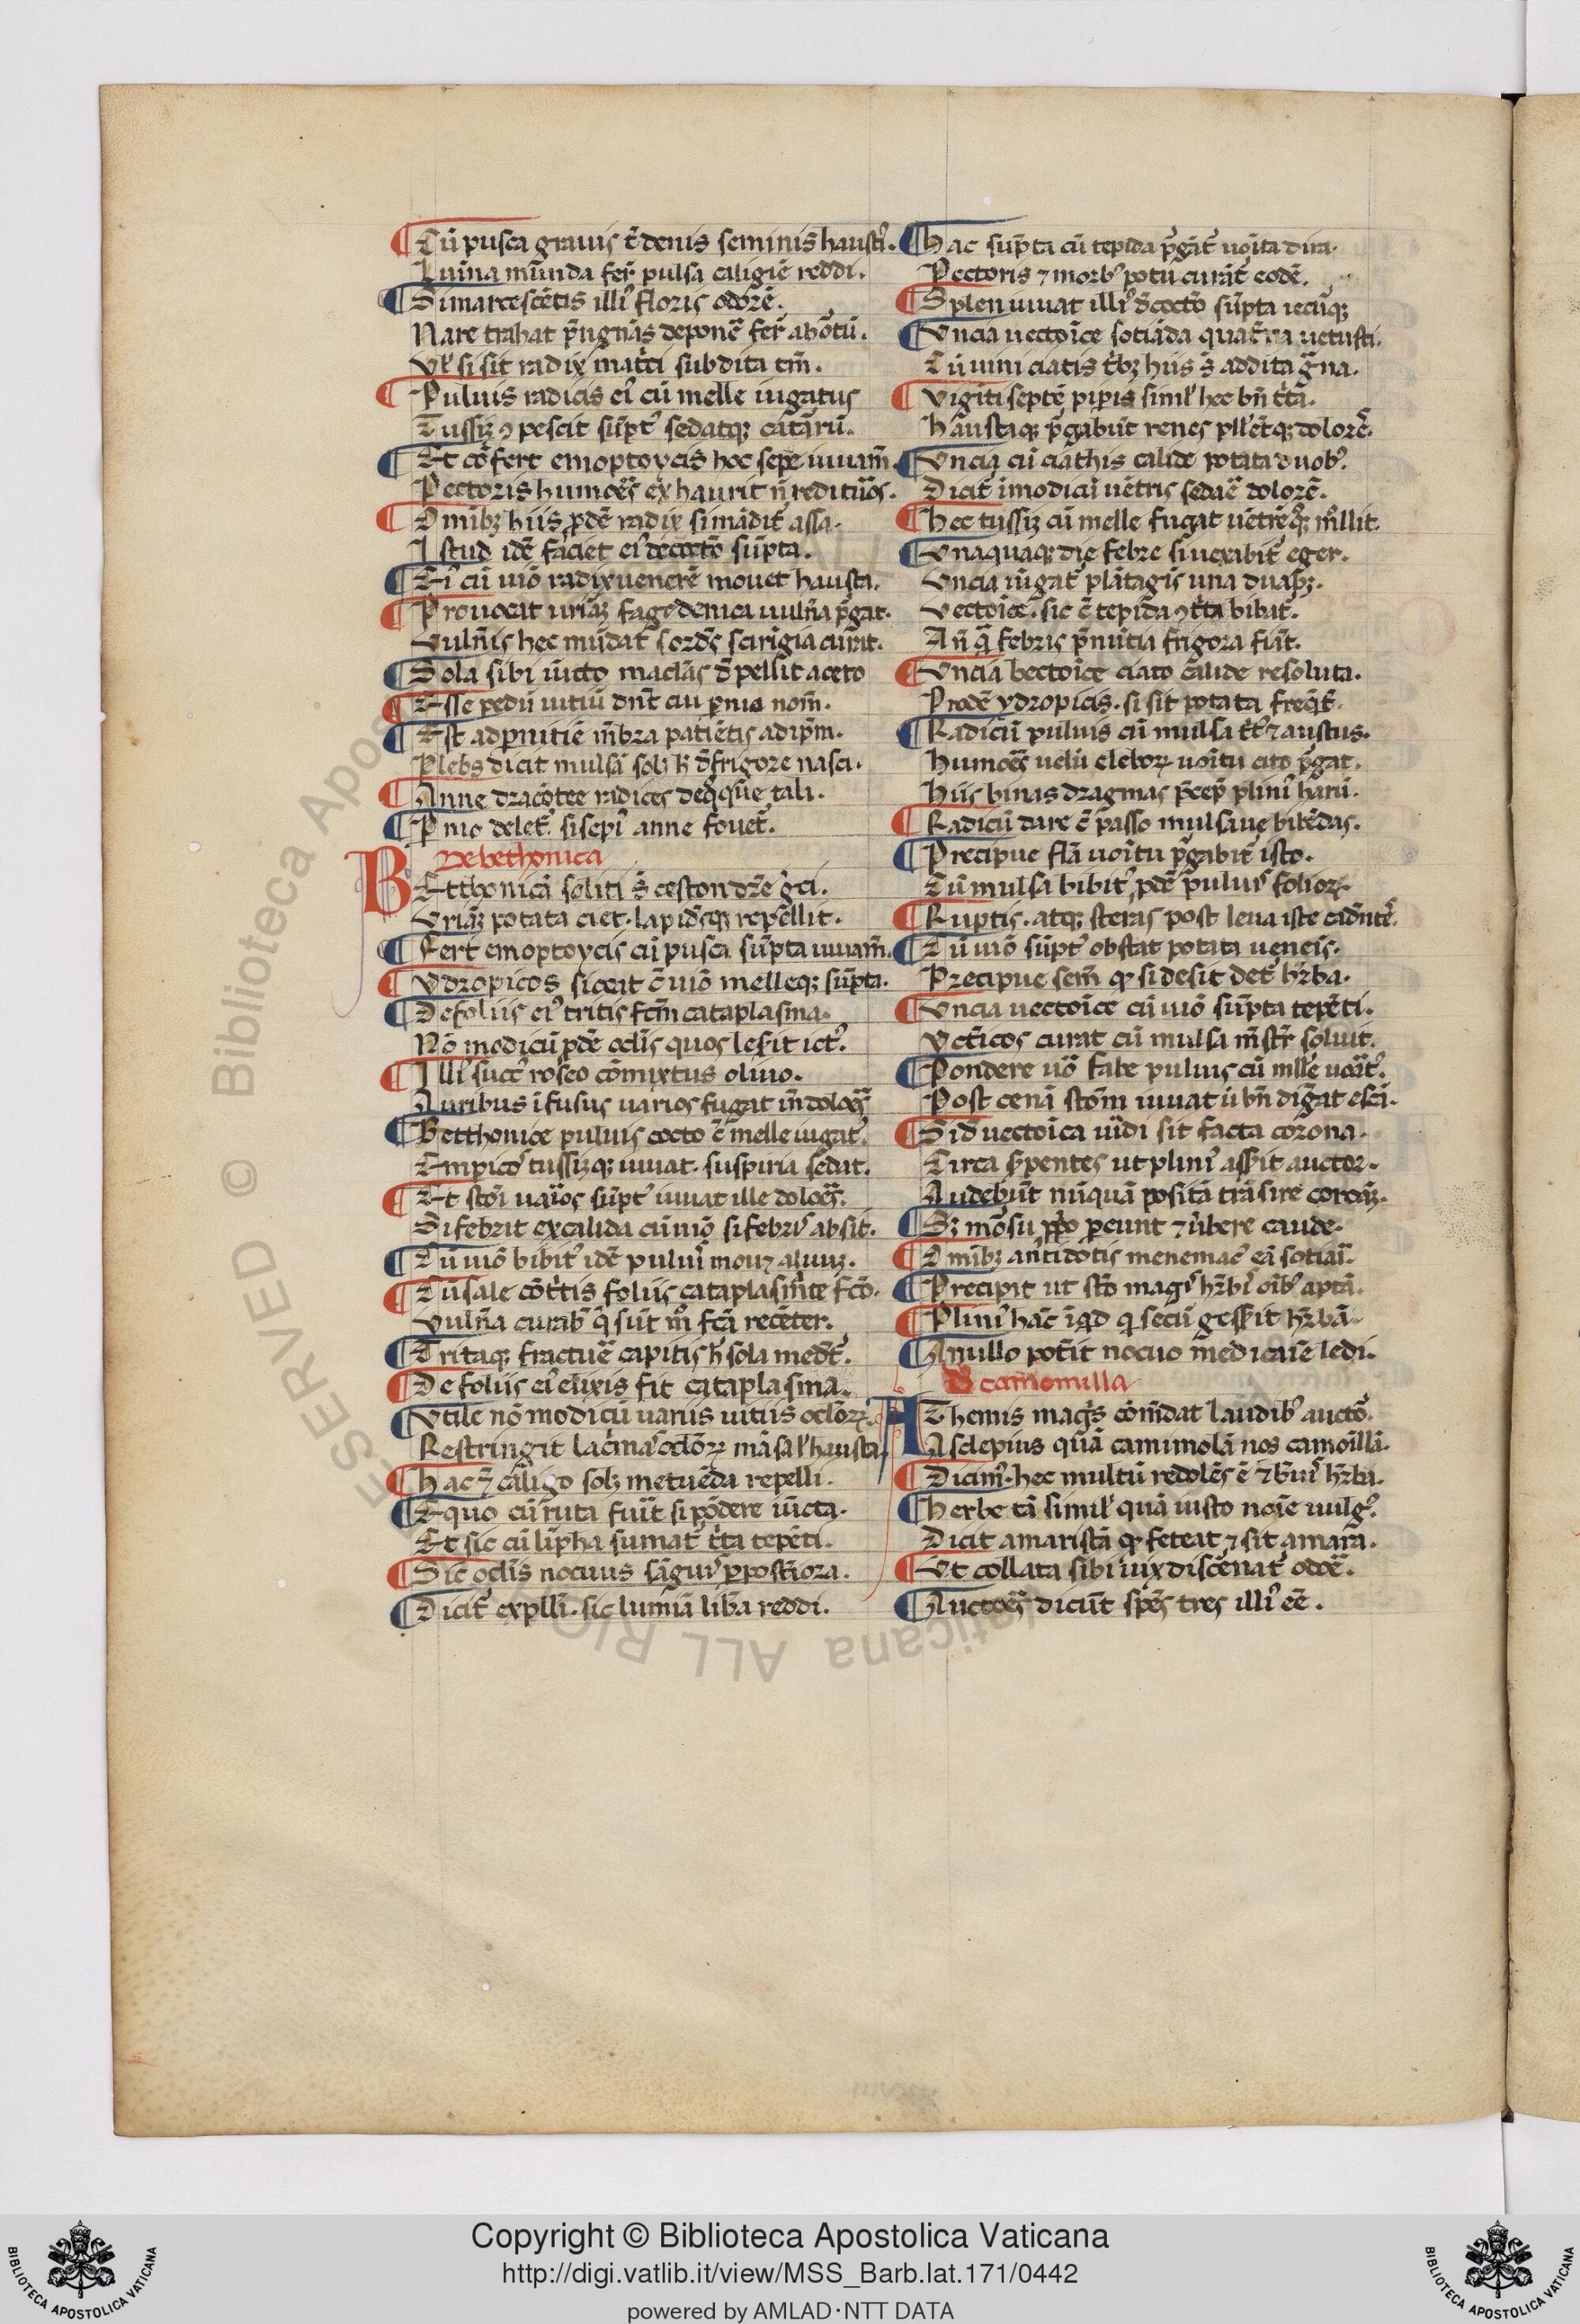 Cū pusca grauis t̄denis seminis haustꝰ.
Lumīa mūnda fert̄ pulsa caligīe reddi.
Si marcescētis illiꝰ floris odorē.
Nare trahat p̄ngnās deponē fert̄ abōtū.
Vl̓ si sit radix mat̓ci subdita tm̄.
Puluis radicis eiꝰ cū melle iugatus
Tussiꝫ ꝯpescit sūptꝰ sedatqꝫ catarū.
Et cōfert emoptoycis hoc sepe iuuam̄.
Pectoris humoēs exhaurit n̄ redituros.
Omībꝫ hiis ꝓdē radix si mādit̄ assa.
Istud idē faciet eiꝰ decoctō sūpta.
Eiꝰ cū uīo radix uenerē mouet hausta.
Prouocat urīāꝫ fagedenica uulñа p̄gat.
Vulñis hec mūdat sordēs scirīgia curat.
Sola sibi iūcto maclās dpellit aceto
Esse pedū uitiū dn̄t cui pnio nom̄.
Est ad pnitiē m̄bra patiētis ad ip̄m.
Plebs dicit mulsā solꝫ h̄ d̄ frigore nasci.
Anne dracōtee radices deq̄que tali.
Pnio delet̄. si sepiꝰ anne fouet̄.
De bethonica
BEtthonicā soliti s̄ ceston dr̄e ḡci.
Vriāꝫ potata ciet. lapidēsqꝫ repellit.
Fert emoptoycis cū pusca sūpta iuuam̄.
Ydropicos siccat c̄ uīo melleqꝫ sūpta.
De foliis eiꝰ tritis fcm̄ cataplasma.
Nō modicū ꝓdē oclīs quos lesit ictꝰ.
Illiꝰ succꝰ roseo cōmixtus oliuo.
Auribus īfusus uarios fugat īn doloēs
Betthonice puluis cocto c̄ melle iugatꝰ.
Empicoꝰ tussiꝫqꝫ iuuat. suspiria sedat.
Et stōī uarios sūptꝰ iuuat ille doloēs.
Si febrit ex calida cū uīo si febrꝰ absit.
Cū uīo bibitꝰ idē puluiꝰ mouꝫ aluuꝫ.
Cū sale cōt̓tis foliis cataplasm̄te fcō.
Vulñа curabꝰ q̄ sūt m̊ fcā recēter.
Tritaqꝫ fractuē capitis h̄ sola medet̄.
De foliis eiꝰ elixis fit cataplasma.
Vtile nō modicū uariis uitiis oclōꝝ.
Restringit lac̓maꝰ oclōꝝ māsa ul̓ hausta.
Hac ⁊ caligo solꝫ metuēda repelli.
Equo cū ruta fuit̄ si pōdere iūcta.
Et sic cū līpha sumat̄ t̓ta tepēti.
Sic oclīs nocuus sāguiꝰ ꝑ posteriora.
Dicit̄ explli. sic lumiā libā reddi.
Hac sūpta cū tepida p̄gāt̄ uoīta dira.
Pectoris ⁊ morbꝰ potu curāt̄ eodē.
Splen iuuat illiꝰ dcoctō sūpta iecūqꝫ
Vncia uectoīce sotiāda quat̄na uetusti.
Cū uini ciatis t̓bꝫ hiis s̄ addita ḡna.
Vigīti septē pipis simīl hec bn̄ t̓ta.
Haustaqꝫ p̄gabūt renes pllētqꝫ dolorē.
Vncia cū ciathis calide potata duobꝰ.
Dicit̄ īmodicū uētris sedaē dolorē.
Hec tussiꝫ cū melle fugat uētrēqꝫ m̊llit.
Vnaquaqꝫ die febre si uexabit̄ eger.
Vncia iūgat̄ plātagis una duabꝫ.
Vectoīce. sic c̄ tepida ꝯt̓ta bibat̄.
Añ q̄ febris p̄nūtia frigora fiāt.
Vncia bectoīce ciato calide resoluta.
Prodē ydropicis. si sit potata freq̄t̄.
Radicū puluis cū mulsa t̄tꝰ ⁊ austus.
Humoēs uelū eleboꝝ uoītu cito p̄gat.
Hiis binas dragmas p̄cep̄ pliniꝰ harū.
Radicū dare c̄ passo mulsaue bibēdas.
Precipue flā uoītu p̄gabit isto.
Cū mulsa bibitꝰ ꝓdē puluiꝰ folioꝝ.
Ruptis. atqꝫ steras post leua iste cadētē.
Cū uīo sūptꝰ obstat potata uenēis.
Precipue sem̄ qꝫ si desit det̄ hr̄ba.
Vncia uectoīce cū uīo sūpta tepēti.
Yctīcos curat cū mulsa m̄str̄ soluit.
Pondere uō fabe puluis cū mlle uoāt̄.
Post cenā stōm iuuat ū bn̄ digāt escā.
Si d̄ uectoīca uīdi sit facta corona.
Circa sp̄entes ut pliniꝰ assērit auctor.
Audebūt nūquā positā trāsire coronāꝫ.
Sꝫ mōsu ꝓp̄o pereunt ⁊ ūbere caude.
Omībꝫ antidotis menemacꝰ eā sotiaī.
Precipit ut stō magꝰ hr̄biꝰ oībꝰ aptā.
Pliniꝰ hāc īqd q̄ secū gesserit hr̄bā.
A nullo potit nocuo medicaīe ledi.
De camomilla
AThemis magīs cōmdat laudibꝰ auctōꝰ.
Asclepius quā camimolā nos camoīllā.
Dicimꝰ. hec multū redolēs ē ⁊ bꝛuiꝰ hr̄ba.
Herbe tā simīl quā iusto noīe uulgꝰ.
Dicit amaristā qꝫ feteat ⁊ sit amara.
Vt collata sibi uix discēnat̄ odoē.
Auctoēs dicūt sp̄ēs tres illiꝰ eē.
Copyright © Biblioteca Apostolica Vaticana
http://digi.vatlib.it/view/MSS_Barb.lat.171/0442
powered by AMLAD·NTT DATA